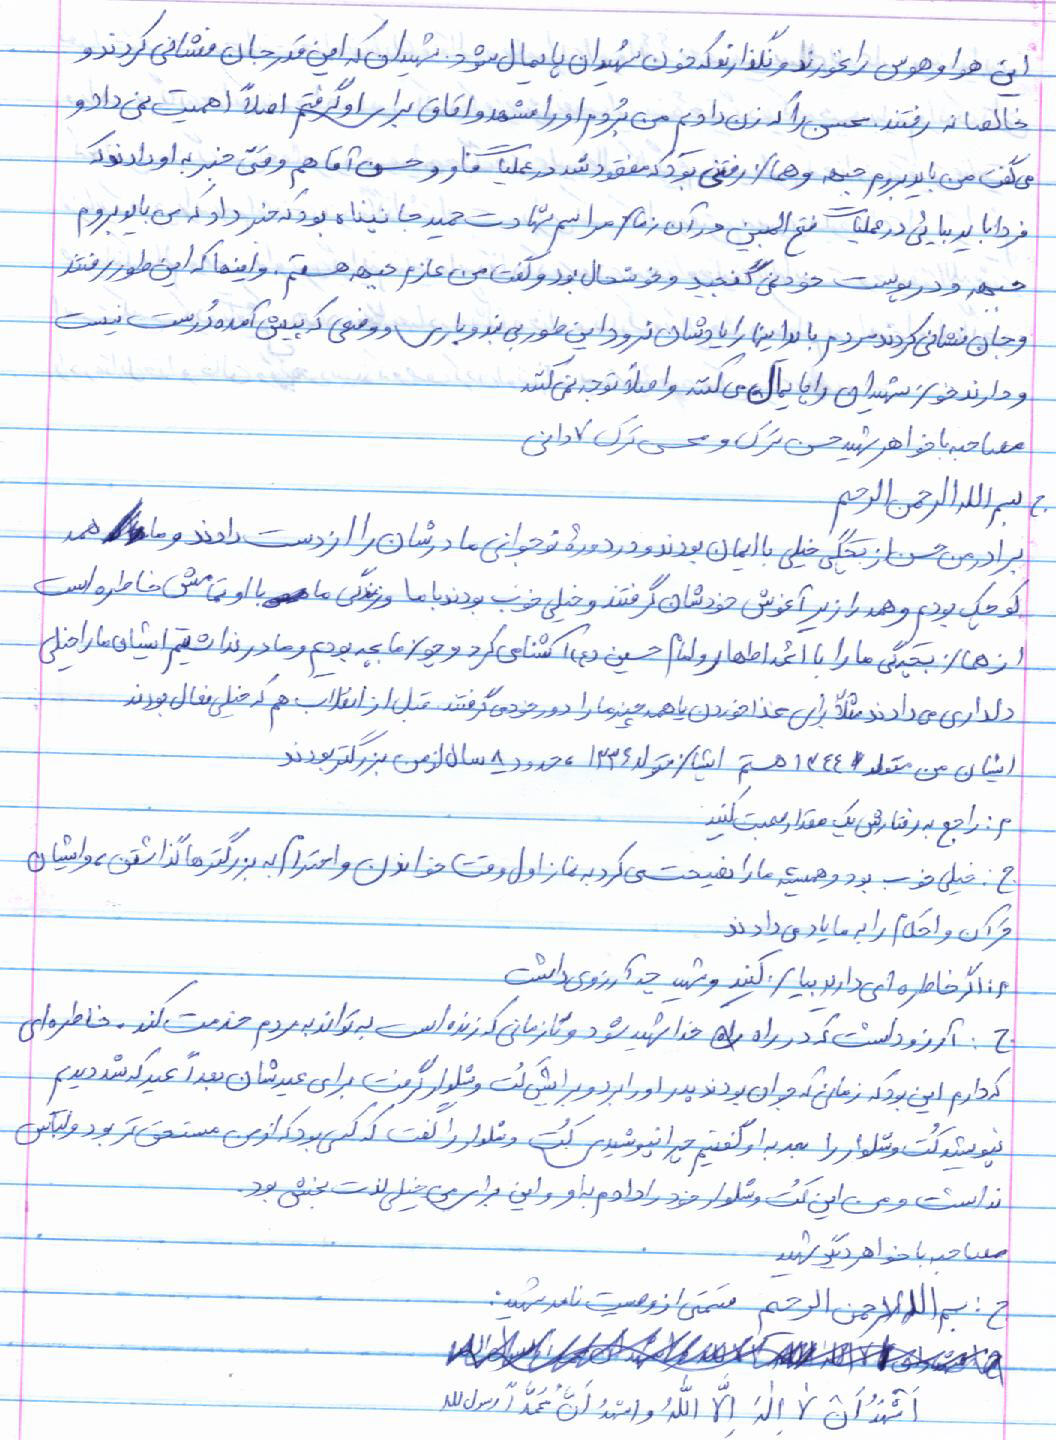 این هوا و هوس را نخورند و نگذارند که خون شهیدان پایمال شود. شهیدان که این قدر جان فشانی کردند و
خالصانه رفتند. محسن را که زن دادیم من بُردم او را مشهد و اتاق برای او گرفتم اصلاً اهمیت نمی داد و
می گفت من باید بروم جبهه و همان رفتنی بود که مفقود شد در عملیات و حسن آقا هم وقتی خبر به او دادند که
فردا باید بیائی در عملیات فتح المبین در آن زمان مراسم شهادت حمید بود که خبر داد که من باید بروم
جبهه و در پوست خود نمی گنجید و خوشحال بود و گفت من عازم جبهه هستم. و اینها که این طور رفتند
و جان فشانی کردند مردم باید اینها را یادشان نرود این طور بی بند و باری و وضعی که پیش آمده دُرست نیست
و دارند خون شهیدان را پایمال می کنند و اصلاً توجه نمی کنند
مصاحبه با خواهر شهید حسن ترک و محسن ترک لادانی
ج بسم الله الرحمن الرحیم
برادر من حسن از بچگی خیلی با ایمان بودند و در دورهٔ نوجوانی مادرشان را از دست دادند و ما همه
کوچک بودیم و همه را زیر آغوش خودشان گرفتند و خیلی خوب بودند با ما و زندگی ما با او تمامش خاطره است
از همان بچگی ما را با ائمه اطهار و امام حسین (ع) آشنا می کرد و چون ما بچه بودیم و مادر نداشتیم ایشان ما را خیلی
دلداری می دادند مثلاً برای غذا خوردن یا همه چیز ما را دور خود می گرفتند. قبل از انقلاب هم که خیلی فعال بودند
ایشان من متولد ۱۳۴۴ هستم ایشان متولد ۱۳۳۶، حدود ۸ سال از من بزرگتر بودند
م: راجع به رفتارش یک مقدار صحبت کنید
ج: خیلی خوب بود و همیشه ما را نصیحت می کرد به نماز اول وقت خواندن و احترام به بزرگترها گذاشتن، و ایشان
قرآن و احکام را به ما یاد می دادند
م: اگر خاطره ای دارید بیان کنید و شهید چه آرزوی داشت
ج: آرزو داشت که در راه خدا شهید شود و تا زمانی که زنده است به تواند به مردم خدمت کند. خاطره ای
که دارم این بود که زمانی که جوان بودند پدر او را برد و برایش کُت و شلوار گرفت برای عیدشان بعداً عید که شد دیدیم
نپوشید کُت و شلوار را بعد به او گفتیم چرا نپوشیدی کُت و شلوار را گفت که کسی بود که از من مستحق تر بود و لباس
نداشت و من این کُت و شلوار خود را دادم به او و این برای من خیلی لذت بخش بود.
مصاحبه با خواهر دیگر شهید
ج: بسم الله الرحمن الرحیم قسمتی از وصیت نامه شهید:
اَشْهَدُ اَنْ لا اِلهَ اِلَّا اللهُ و اشهدُ اَنَّ مُحَمَّداً رسول الله